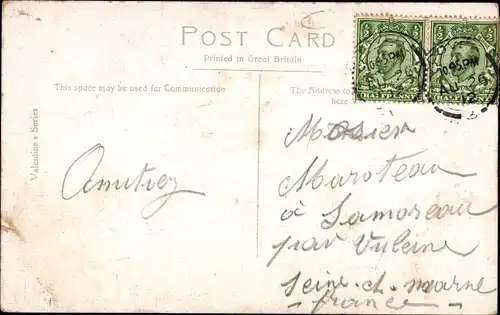 POST CARD
Printed in Great Britain
This space may be used for Communication
The Address to
here
Valentine's Series
10.45 PM
AU 26
12
Amitiez
Mosier
Maroteau
à Samoreau
par Vulaine
Seine et marne
france